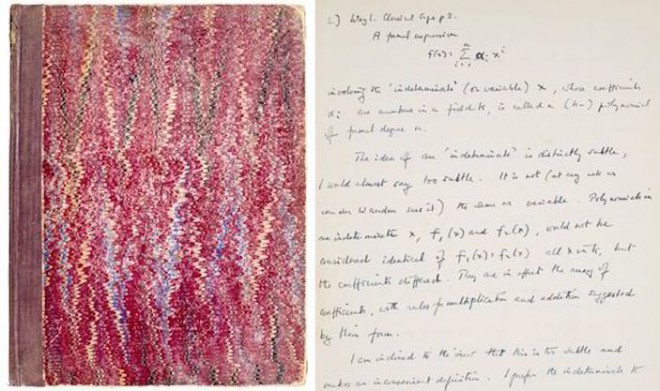 2) Weyl. Classical Groups p 2.
A formal expression
f(x) = Σ αi x^i
involving the 'indeterminate' (or variable) x, whose coefficients
αi are numbers in a field k, is called a (k-) polynomial
of formal degree n.
The idea of an 'indeterminate' is distinctly subtle,
I would almost say too subtle. It is not (at any rate as
van der Waerden sees it) the same as variable. Polynomials in
an indeterminate x, f1(x) and f2(x), would not be
considered identical if f1(x) = f2(x) all x in k, but
the coefficients differed. They are in effect the array of
coefficients, with rules for multiplication and addition suggested
by their form.
I am inclined to the view that this is too subtle and
makes an inconvenient definition. I prefer the indeterminate k